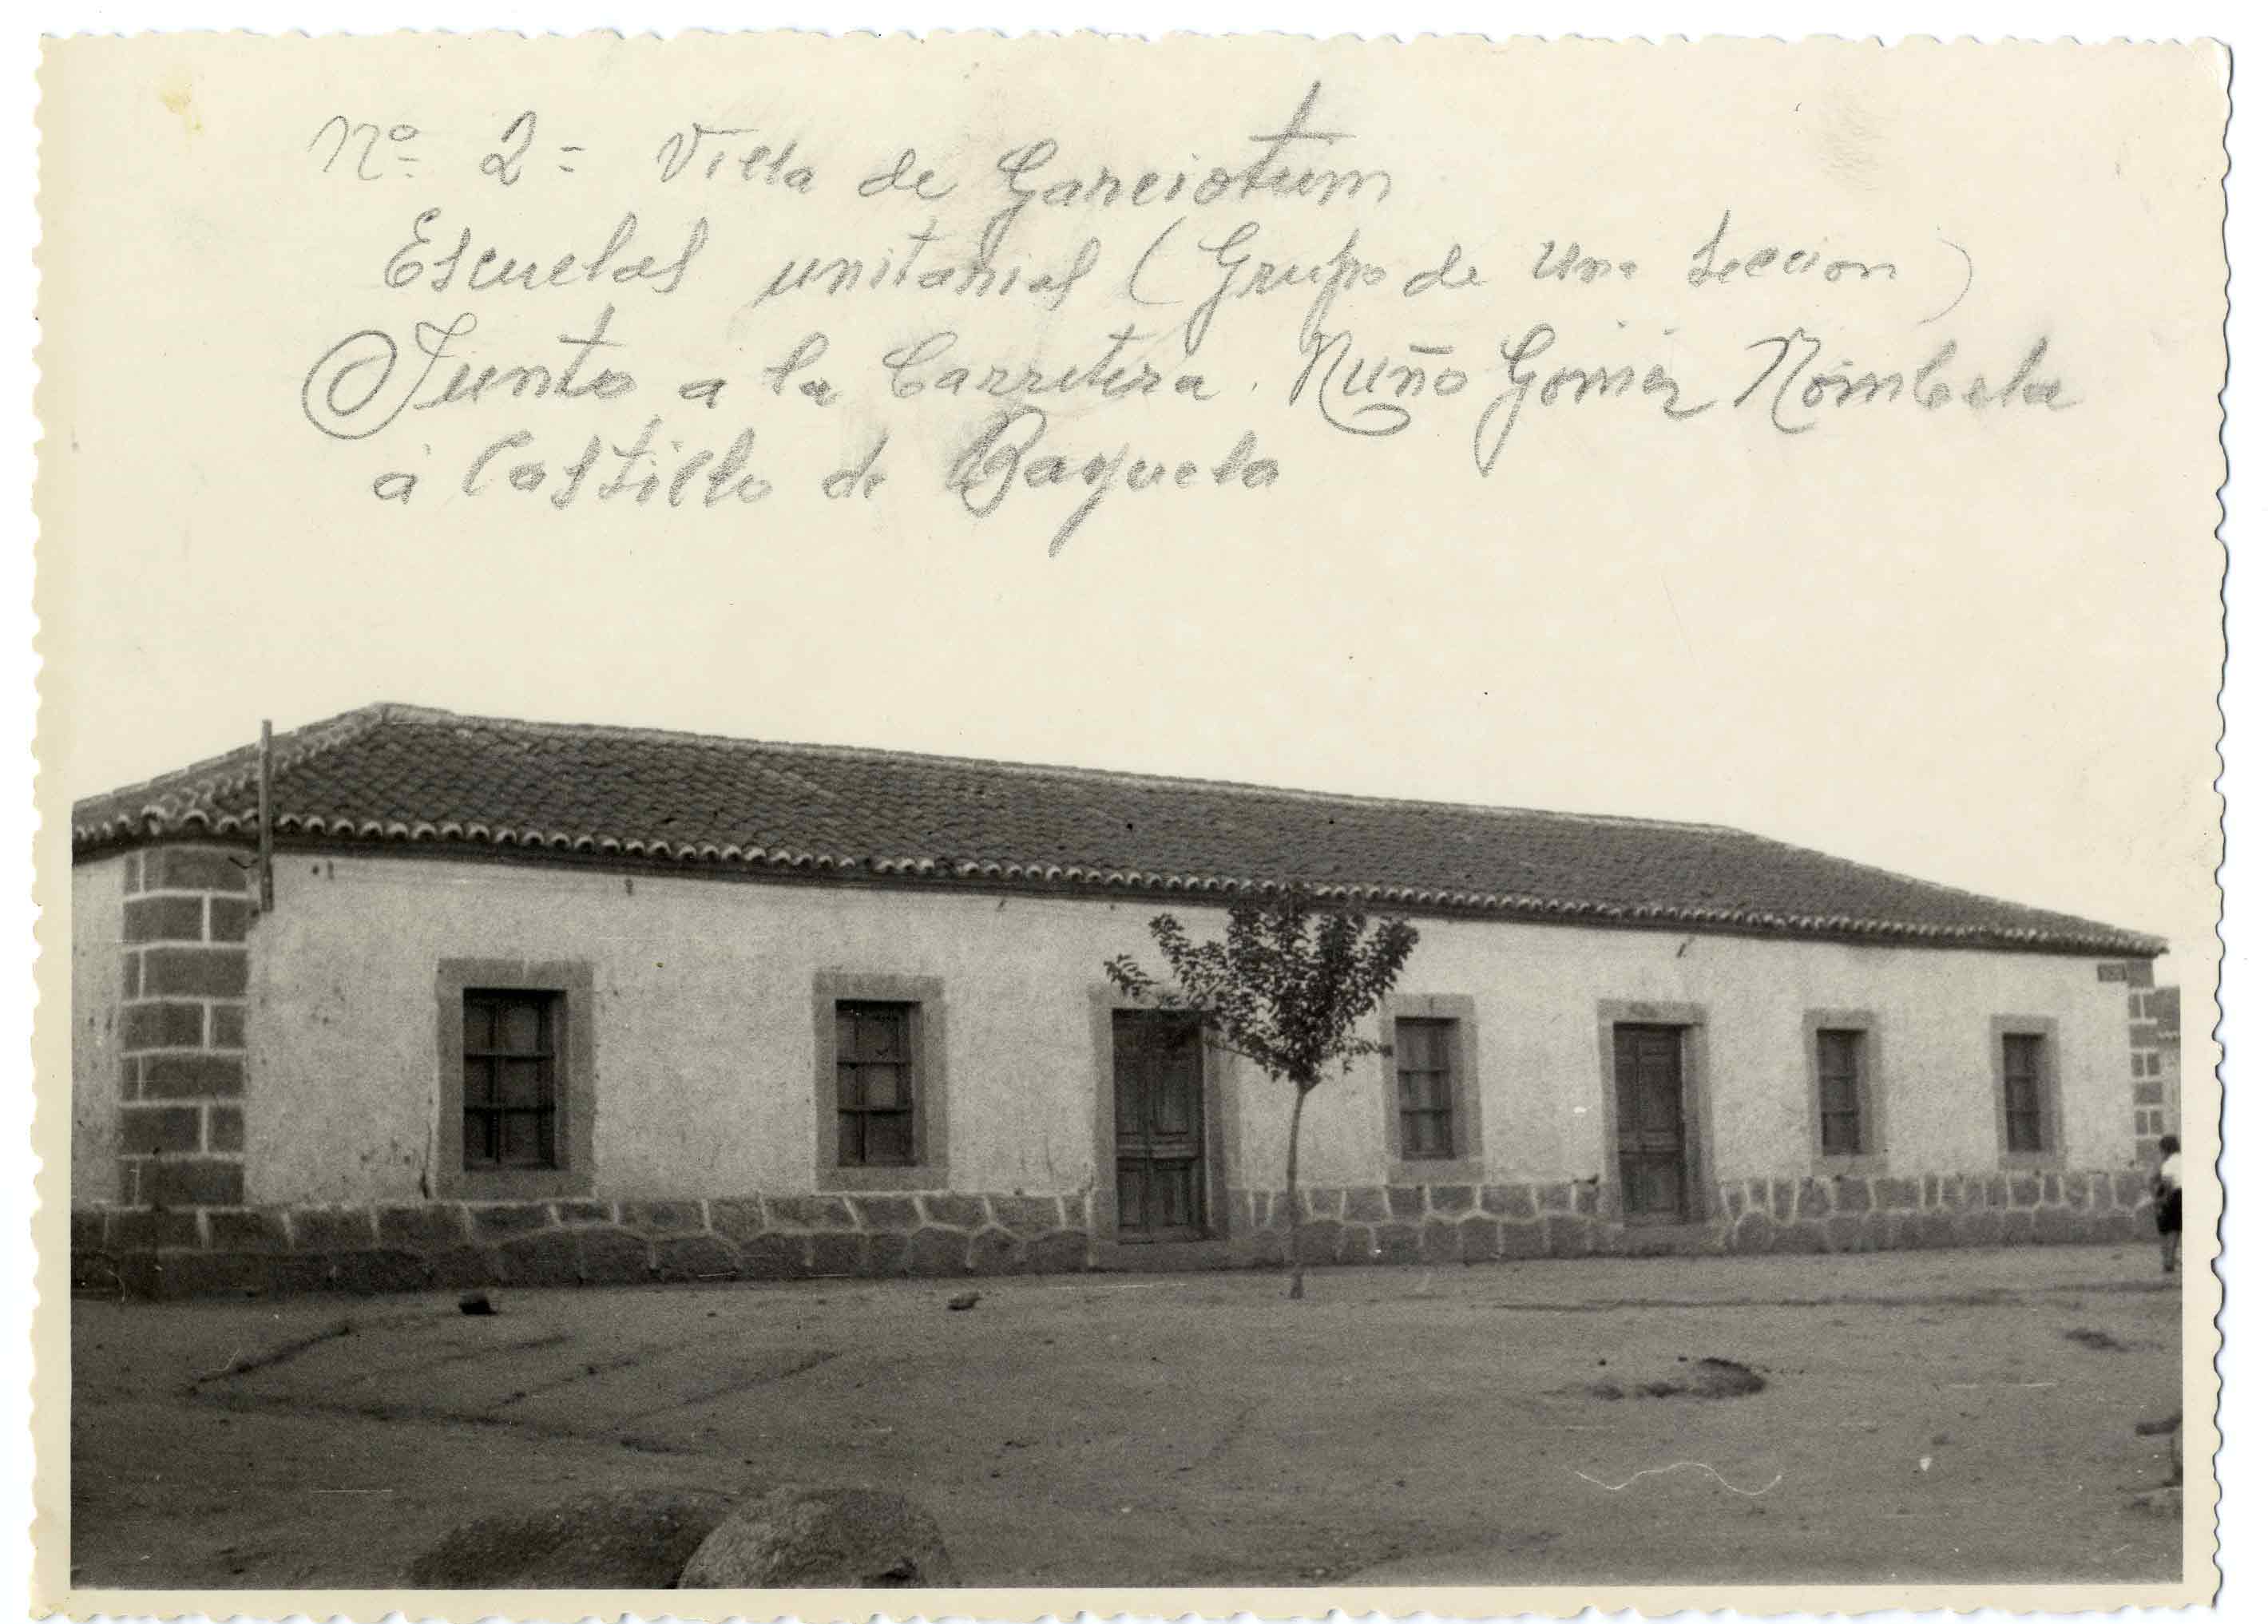 Nº 2 = Villa de Garciotum
Escuelas unitarias (Grupo de una Seccion)
Junto a la Carretera. Nuño Gomez Nombela
a Castillo de Bayuela